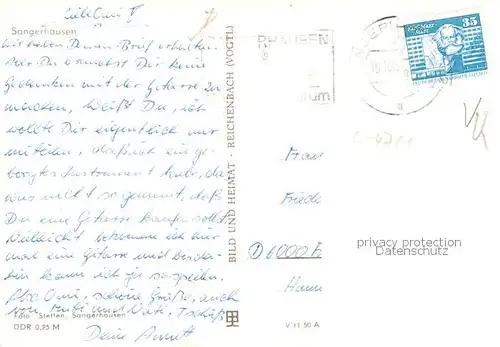 Liebe Omi!
Sangerhausen
wir haben Deinen Brief erhalten.
Aber Du brauchst Dir keine
Gedanken mit der Gitarre zu
machen, heißt Du, ich
wollte Dir eigentlich nur
mitteilen, daß ich ein ge-
borgtes Instrument habe, da
was nicht so gemeint, daß
Du eine Gitarre kaufen sollst
Vielleicht bekomme ich hier
mal eine Gitarre und bis da-
hin kann ich ja so spielen.
Also Omi, schöne Grüße, auch
von Mutti und Vati, Tschüß
Foto: Steffen, Sangerhausen
DDR 0,25 M
Deine
BILD UND HEIMAT · REICHENBACH (VOGTL)
RHAUSEN
um
35
Frau
Friede
6000 F
Hann
privacy protection
Datenschutz
V 11 50 A